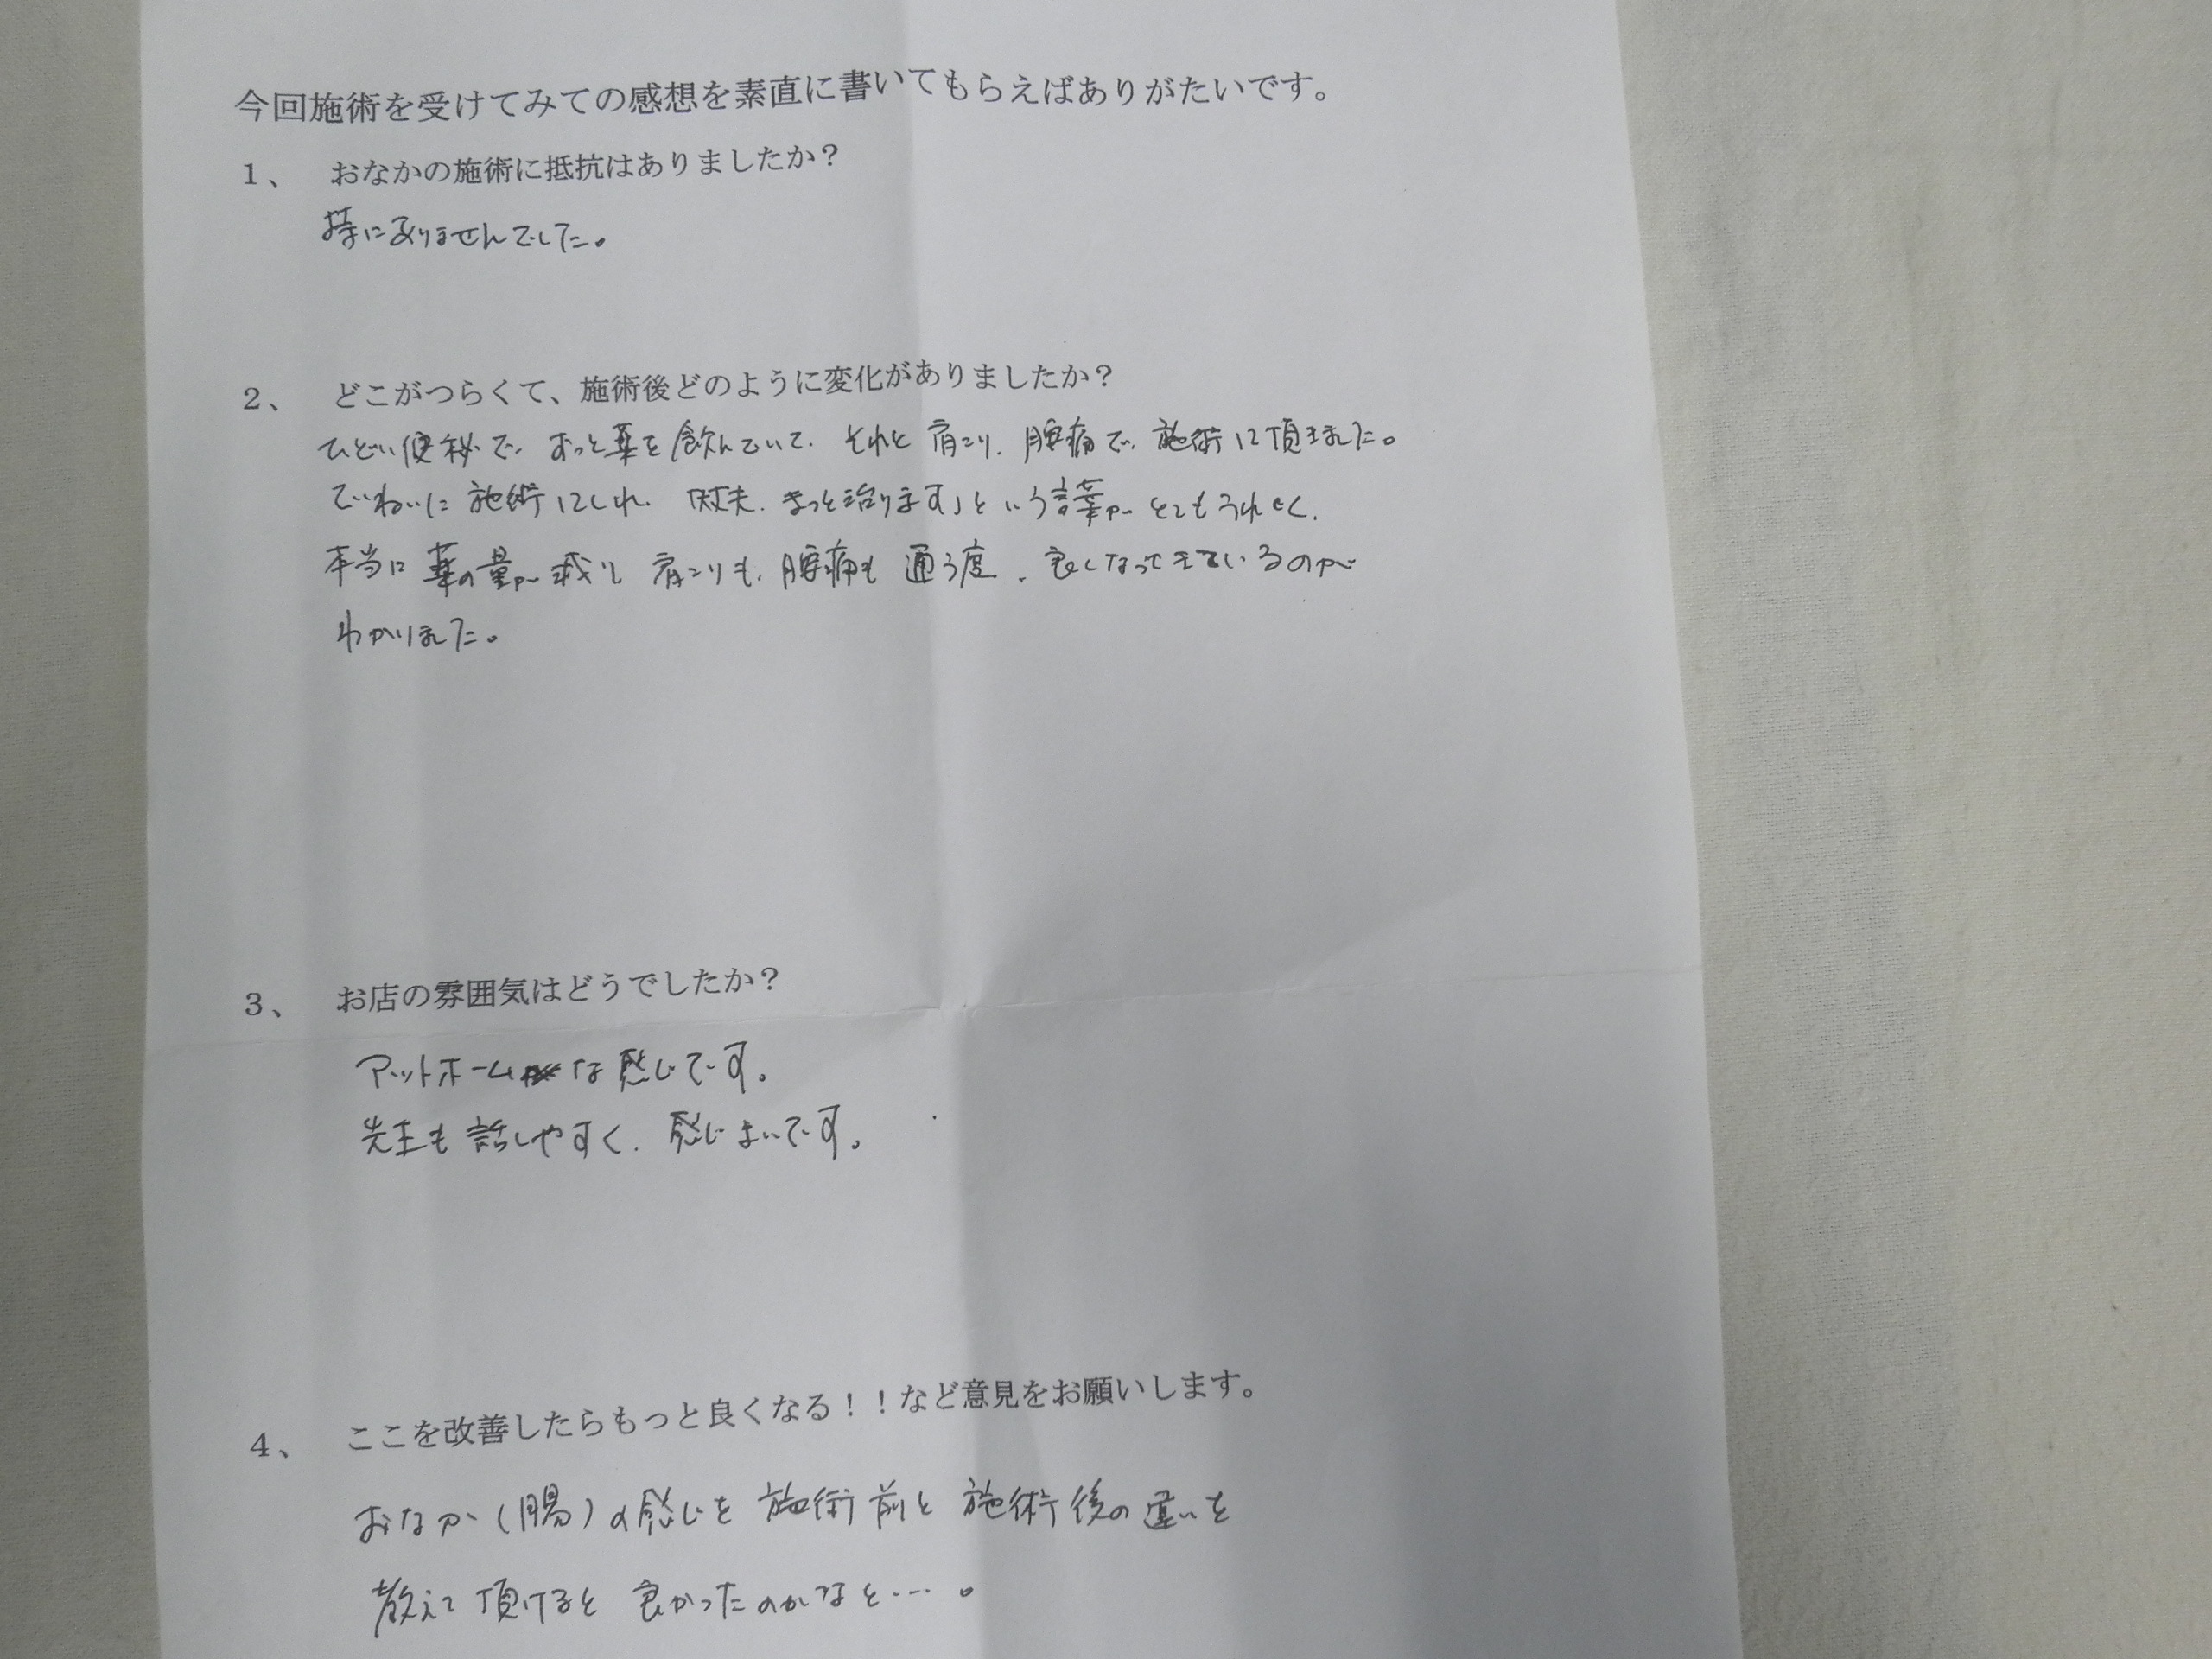 今回施術を受けてみての感想を素直に書いてもらえばありがたいです。
1、 おなかの施術に抵抗はありましたか?
特にありませんでした。
2、 どこがつらくて、施術後どのように変化がありましたか?
ひどい便秘で、ずっと薬を飲んでいて、それと肩こり、腰痛で、施術して頂きました。
ていねいに施術してくれ、「大丈夫、きっと治ります」という言葉がとてもうれしく、
本当に薬の量が減り、肩こりも、腰痛も通う度、良くなってきているのが
わかりました。
3、 お店の雰囲気はどうでしたか?
アットホームな感じです。
先生も話しやすく、感じよいです。
4、 ここを改善したらもっと良くなる!!など意見をお願いします。
おなか(腸)の感じを施術前と施術後の違いを
教えて頂けると良かったのかなと…。